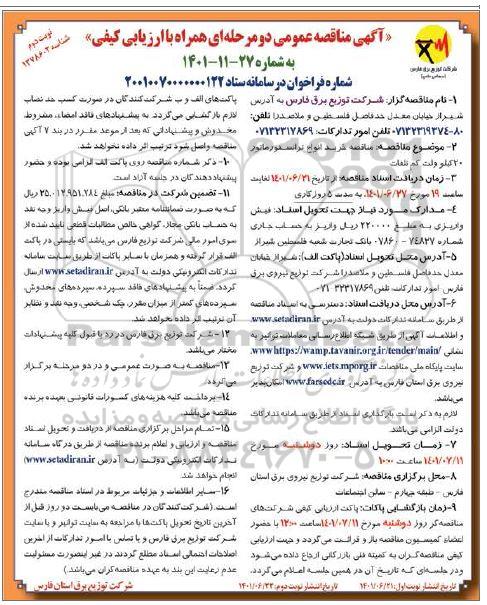 نوبت دوم
شناسه: ۱۳۷۸۶۰۲
شرکت توزیع برق فارس
(سهامی خاص)
«آگهی مناقصه عمومی دو مرحله‌ای همراه با ارزیابی کیفی»
به شماره ۲۷-۱۱-۱۴۰۱
شماره فراخوان در سامانه ستاد ۲۰۰۱۰۰۷۰۰۰۰۰۰۱۲۲
۱- نام مناقصه‌گزار: شرکت توزیع برق فارس به آدرس
شیراز خیابان معدل حدفاصل فلسطین و ملاصدرا تلفن:
۸۰-۰۷۱۳۲۳۱۹۳۷۴ تلفن امور تدارکات: ۰۷۱۳۲۳۱۷۸۶۹
۲- موضوع مناقصه: مناقصه خرید انواع ترانسفورماتور
۲۰کیلو ولت کم تلفات
۳- زمان دریافت اسناد مناقصه: از تاریخ ۱۴۰۱/۰۶/۲۱ لغایت
ساعت ۱۹ مورخ ۱۴۰۱/۰۶/۲۷، به مدت ۵ روز کاری
۴- مدارک مورد نیاز جهت تحویل اسناد: فیش
واریزی به مبلغ ۲۲۰۰۰۰ ریال واریز به حساب جاری
شماره ۷۴۸۳۷-۰۷۸۶۰ بانک تجارت شعبه فلسطین شیراز
۵- آدرس محل تحویل اسناد(پاکت الف): شیراز خیابان
معدل حدفاصل فلسطین و ملاصدرا شرکت توزیع نیروی برق
فارس امور تدارکات، تلفن ۳۲۳۱۷۸۶۹-۰۷۱
۶- آدرس محل دریافت اسناد: دسترسی به اسناد مناقصه
از طریق سامانه تدارکات دولت به آدرس www.setadiran.ir
و اطلاعات آگهی از طریق شبکه اطلاع‌رسانی معاملات توانیر به
نشانی https://wamp.tavanir.org.ir/tender/main/
سایت پایگاه ملی مناقصات www.iets.mporg.ir و شرکت توزیع
نیروی برق استان فارس به آدرس www.farsedc.ir امکان‌پذیر
می‌باشد.
لازم به ذکر است بارگذاری اسناد از طریق سامانه تدارکات
دولت الزامی می‌باشد.
۷- زمان تحویل اسناد: روز دوشنبه مورخ
۱۴۰۱/۰۷/۱۱ ساعت ۱۰:۰۰
۸- محل برگزاری مناقصه: شرکت توزیع نیروی برق استان
فارس - طبقه چهارم - سالن اجتماعات
۹- زمان بازگشایی پاکات: پاکات ارزیابی کیفی شرکت‌های
مناقصه‌گر روز دوشنبه مورخ ۱۴۰۱/۰۷/۱۱ ساعت ۱۲:۰۰ با حضور
اعضاء کمیسیون مناقصه باز و قرائت می‌گردد و جهت ارزیابی
کیفی مناقصه‌گران به کمیته فنی بازرگانی ارجاع داده می‌شود
و در جلسه‌ای که تاریخ آن در همین جلسه اعلام می‌گردد.
پاکت‌های الف و ب شرکت‌کنندگان در صورت کسب حد نصاب
لازم بازگشایی می‌گردد. به پیشنهادهای فاقد امضاء، مشروط،
مخدوش و پیشنهاداتی که بعد از موعد مقرر در بند ۷ آگهی
مناقصه واصل شود ترتیب اثر داده نخواهد شد.
۱۰- ذکر شماره مناقصه روی پاکت الف الزامی بوده و حضور
پیشنهاددهندگان در جلسه آزاد است.
۱۱- تضمین شرکت در مناقصه: مبلغ ۳۵.۰۱۲.۹۵۱.۲۸۴ ریال
که به صورت ضمانتنامه معتبر بانکی، اصل فیش واریز وجه نقد
به حساب بانکی مجاز، گواهی خالص مطالبات قطعی تایید شده از
سوی امور مالی شرکت توزیع فارس می‌باشد که بایستی در پاکت
الف قرار گرفته و همزمان با سایر پاکات از طریق سایت سامانه
تدارکات الکترونیکی دولت به آدرس www.setadiran.ir ارسال
گردد. ضمناً به پیشنهادهای فاقد سپرده، سپرده‌های مخدوش،
سپرده‌های کمتر از میزان مقرر، چک شخصی، وجه نقد و نظایر
آن ترتیب اثر داده نخواهد شد.
۱۲- شرکت توزیع برق فارس در رد یا قبول کلیه پیشنهادات
مختار می‌باشد.
۱۳- مناقصه به صورت عمومی و در دو مرحله برگزار
می‌گردد.
۱۴- پرداخت کلیه هزینه‌های کسورات قانونی بعهده برنده
مناقصه می‌باشد.
۱۵- تمام مراحل برگزاری مناقصه از دریافت و تحویل اسناد
مناقصه و ارزیابی و اعلام برنده مناقصه از طریق درگاه سامانه
تدارکات الکترونیکی دولت (به آدرس www.setadiran.ir)
انجام خواهد شد.
۱۶- سایر اطلاعات و جزئیات مربوط در اسناد مناقصه مندرج
است. (شرکت‌کنندگان در مناقصه می‌بایست دو روز قبل از
آخرین تاریخ تحویل پاکت‌ها با مراجعه به سایت توانیر و یا سایت
شرکت توزیع برق فارس و یا تماس با امور تدارکات از آخرین
اصلاحات احتمالی اسناد مطلع گردند در غیر اینصورت مسئولیت
عدم رعایت این بند به عهده مناقصه‌گران می‌باشد.)
تاریخ انتشار نوبت اول: ۱۴۰۱/۰۶/۲۱ تاریخ انتشار نوبت دوم: ۱۴۰۱/۰۶/۲۲
شرکت توزیع برق استان فارس